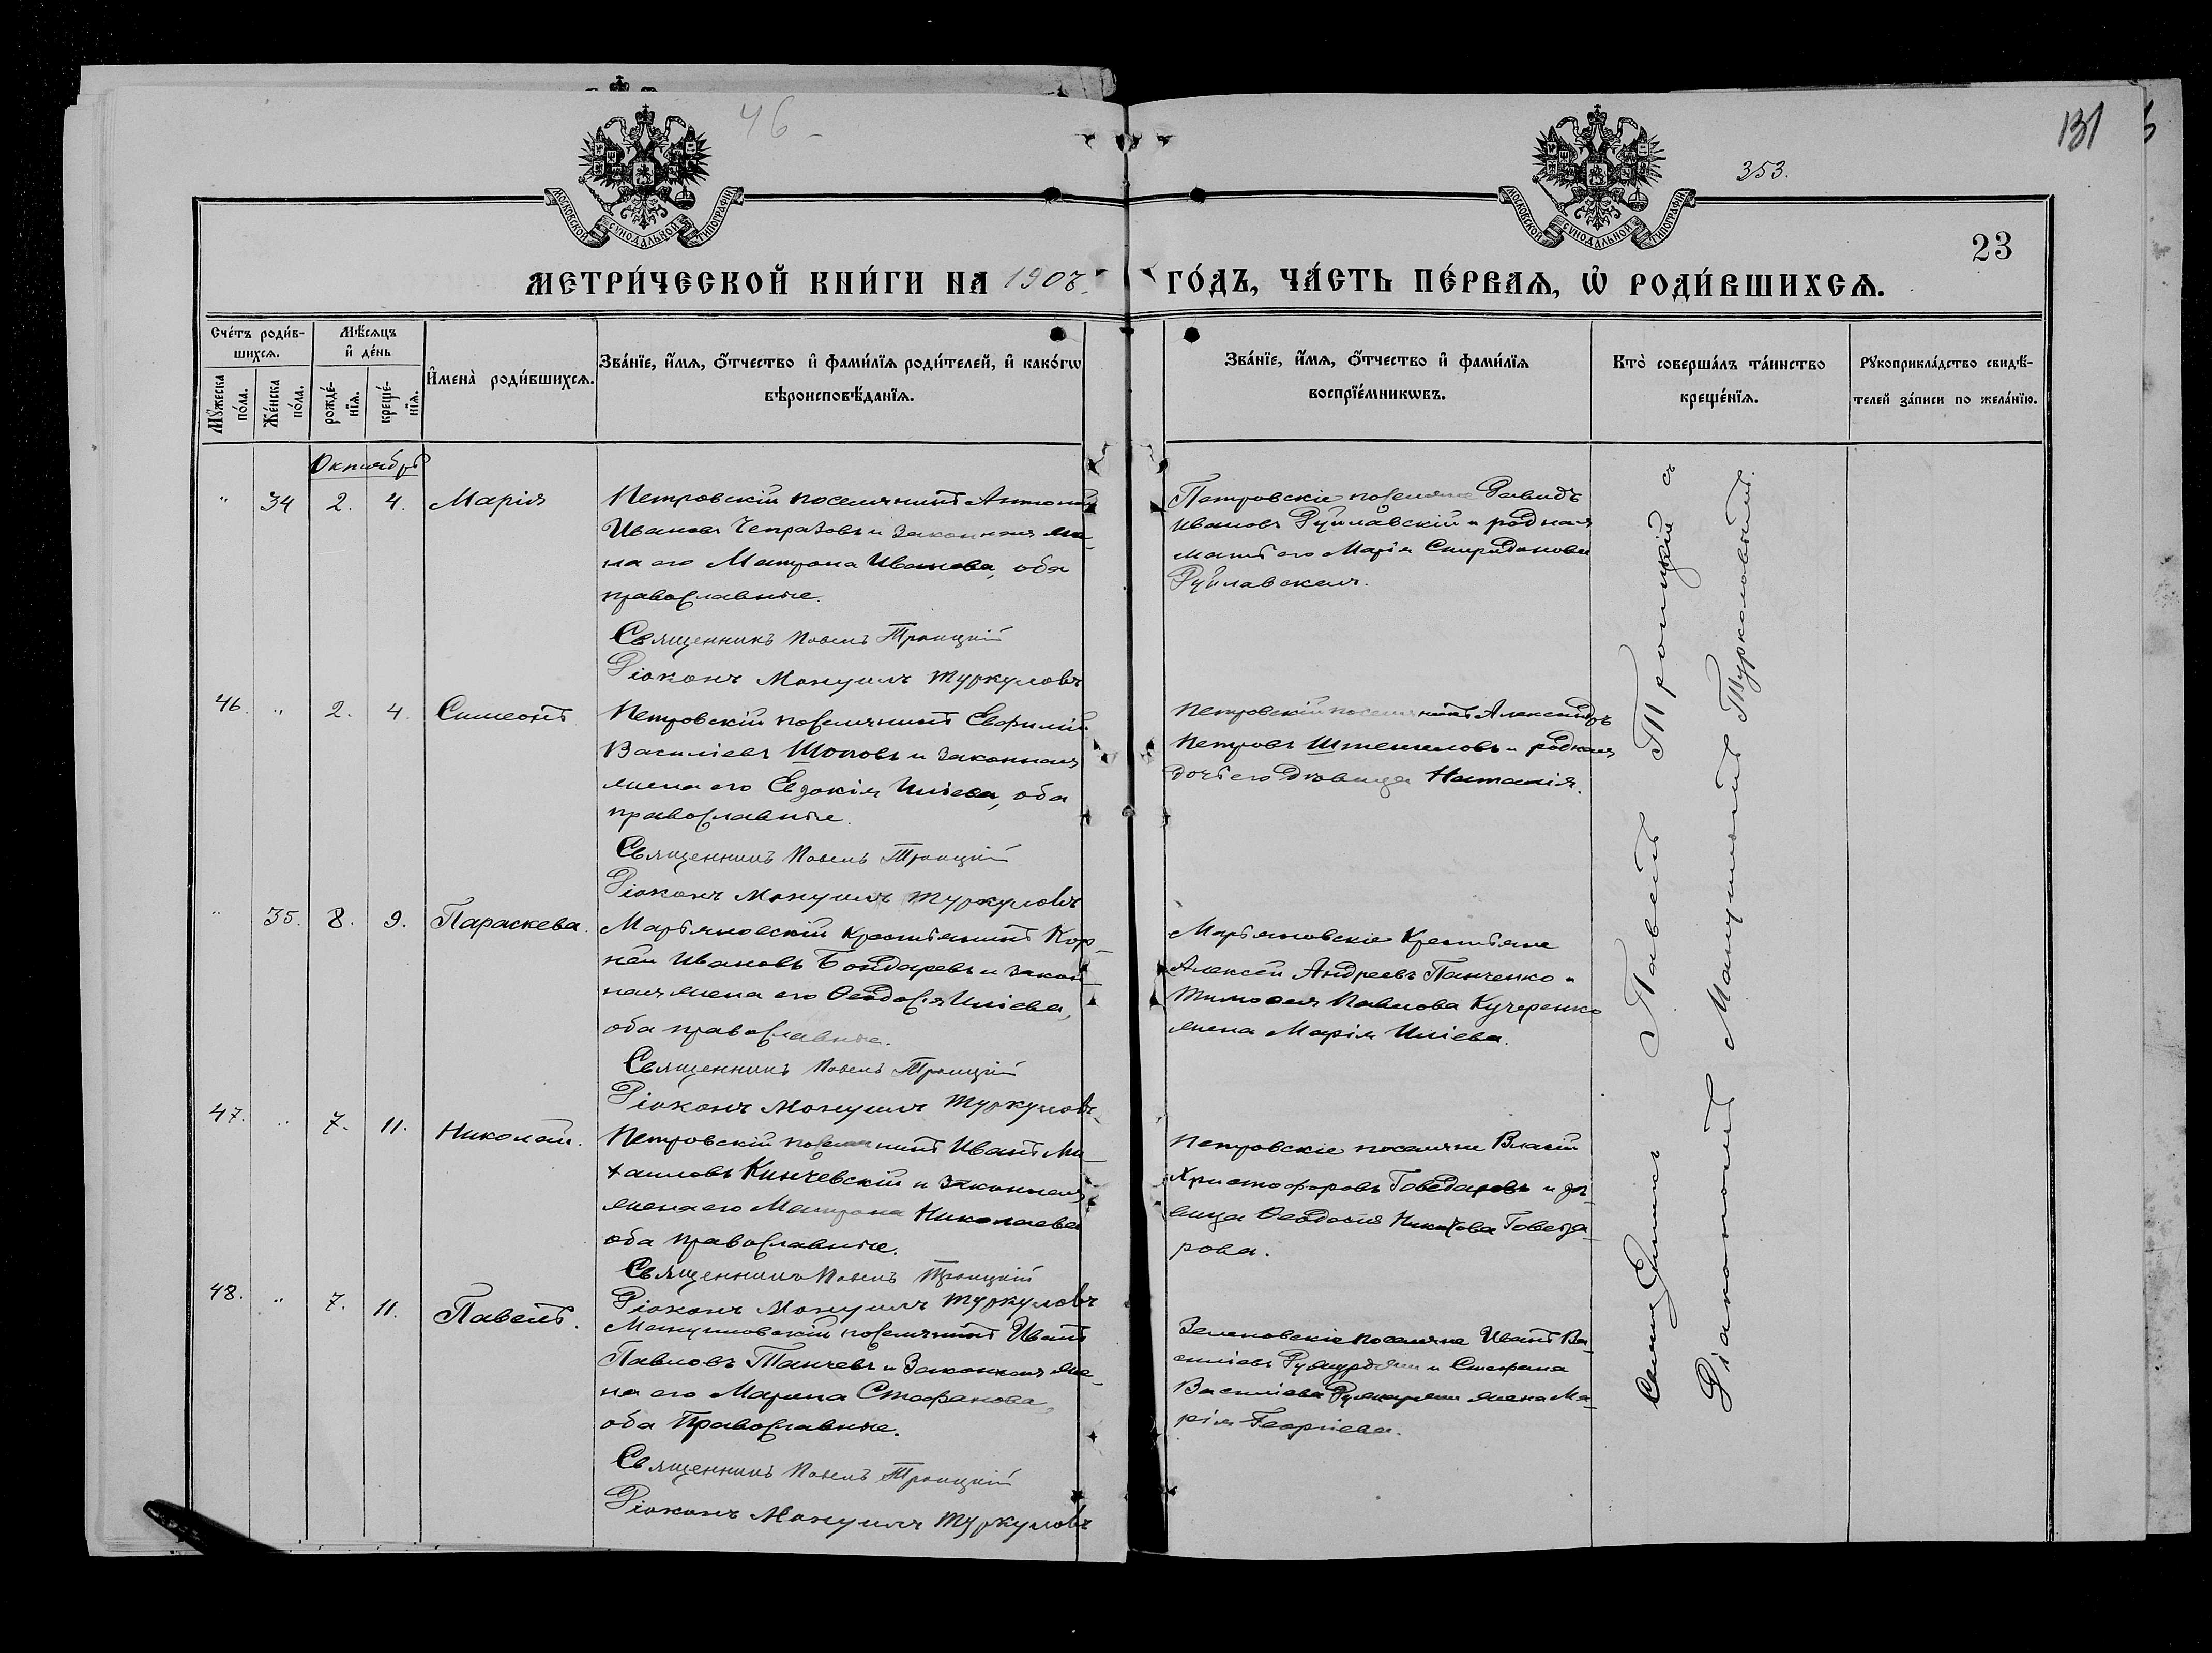 46
131
353.
23
МОСКОВСКОЙ СѴНОДАЛЬНОЙ ТИПОГРАФІИ
МОСКОВСКОЙ СѴНОДАЛЬНОЙ ТИПОГРАФІИ
МЕТРИ́ЧЕСКОЙ КНИ́ГИ НА 1907 ГО́ДЪ, ЧА́СТЬ ПЕ́РВАѦ, Ѡ҆ РОДИ́ВШИХСѦ.
Сче́тъ роди́в-
шихсѧ.
Мꙋ́жеска по́ла.
Же́нска по́ла.
Мѣ́сѧцъ
и҆ де́нь
рожде́-
нїѧ.
креще́-
нїѧ.
И҆мена̀ роди́вшихсѧ.
Зва́нїе, и҆́мѧ, ѻ҆́тчество и҆ фами́лїѧ роди́телей, и҆ како́гѡ
вѣроисповѣ́данїѧ.
Зва́нїе, и҆́мѧ, ѻ҆́тчество и҆ фами́лїѧ
воспрїе́мникѡвъ.
Кто̀ соверша́лъ та́инство
креще́нїѧ.
Рꙋкоприкла́дство свидѣ́-
телей за́писи по жела́нїю.
Октябрь
" 34 2. 4. Марія
Петровскій поселянинъ Антоній
Ивановъ Чепразовъ и законная же-
на его Матрона Иванова, оба
православные.
Священникъ Павелъ Троицкій
Діаконъ Мануилъ Туркуловъ
Петровскіе поселяне Давидъ
Ивановъ Руйлавскій и родная
мать его Марія Спиридонова
Руйлавская.
46. " 2. 4. Симеонъ
Петровскій поселянинъ Евфимій
Василіевъ Шоповъ и законная
жена его Евдокія Иліева, оба
православные.
Священникъ Павелъ Троицкій
Діаконъ Мануилъ Туркуловъ
Петровскій поселянинъ Александръ
Петровъ и родная
дочь его дѣвица Наталія.
" 35. 8. 9. Параскева.
Марьяновскій крестьянинъ Кор-
ней Ивановъ Бондаревъ и закон-
ная жена его Ѳеодосія Иліева,
оба православные.
Священникъ Павелъ Троицкій
Діаконъ Мануилъ Туркуловъ
Марьяновскіе крестьяне
Алексѣй Андреевъ Панченко и
Тимоѳея Павлова Кучеренко
жена Марія Иліева.
47. " 7. 11. Николай.
Петровскій поселянинъ Иванъ Ми-
хаиловъ Кинчевскій и законная
жена его Матрона Николаева
оба православные.
Священникъ Павелъ Троицкій
Діаконъ Мануилъ Туркуловъ
Петровскіе поселяне Власій
Христофоровъ Говедаровъ и дѣ-
вица Ѳеодосія Говеда-
рова.
48. " 7. 11. Павелъ.
поселянинъ Иванъ
Павловъ Танчевъ и законная же-
на его Марина Стефанова,
оба православные.
Священникъ Павелъ Троицкій
Діаконъ Мануилъ Туркуловъ
Зеленовскіе поселяне Иванъ Ва-
силіевъ и Стефана
Василіева жена Ма-
рія Георгіева.
Священникъ Павелъ Троицкій съ
Діакономъ Мануиломъ Туркуловымъ.